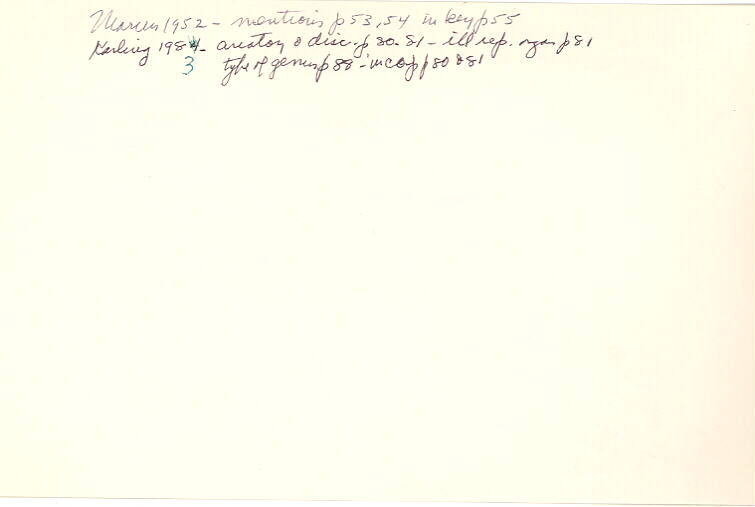 Marcus 1952 - mentions p 53, 54 in key p 55
Karling 1984 - anatomy & disc. p 80-81 - ill rep. organ p 81
3 type of genus p 88 - in p 80 & 81